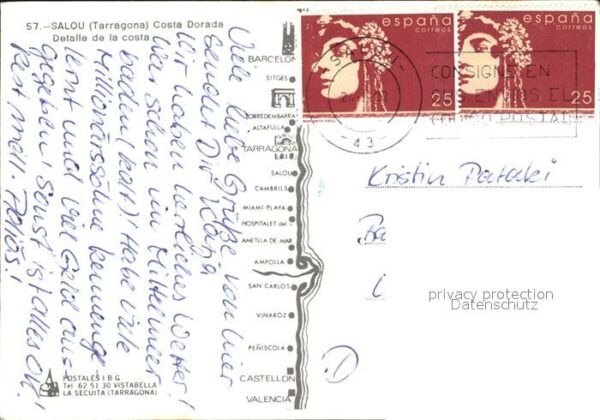 57.—SALOU (Tarragona) Costa Dorada
Detalle de la costa
Viele liebe Grüße von hier
sendet Dir Katja
Wir haben herrliches Wetter!
War schon im Mittelmeer
baden (kalt)! Habe viele
Millionärssöhne kennenge-
lernt und viel Geld aus-
gegeben! Sonst ist alles OK!
POSTALES I B G
Tel 62 51 30 VISTABELLA
LA SECUITA (TARRAGONA)
BARCELONA
SITGES
TORREDEMBARRA
ALTAFULLA
TARRAGONA
SALOU
CAMBRILS
MIAMI-PLAYA
HOSPITALET del I
AMETLLA DE MAR
AMPOLLA
SAN CARLOS
VINAROZ
PEÑISCOLA
CASTELLON
VALENCIA
españa
correos
25
españa
correos
25
CONSIGNE EN
SUS ENVIOS EL
CODIGO POSTAL
43
Kristin
i
D
privacy protection
Datenschutz